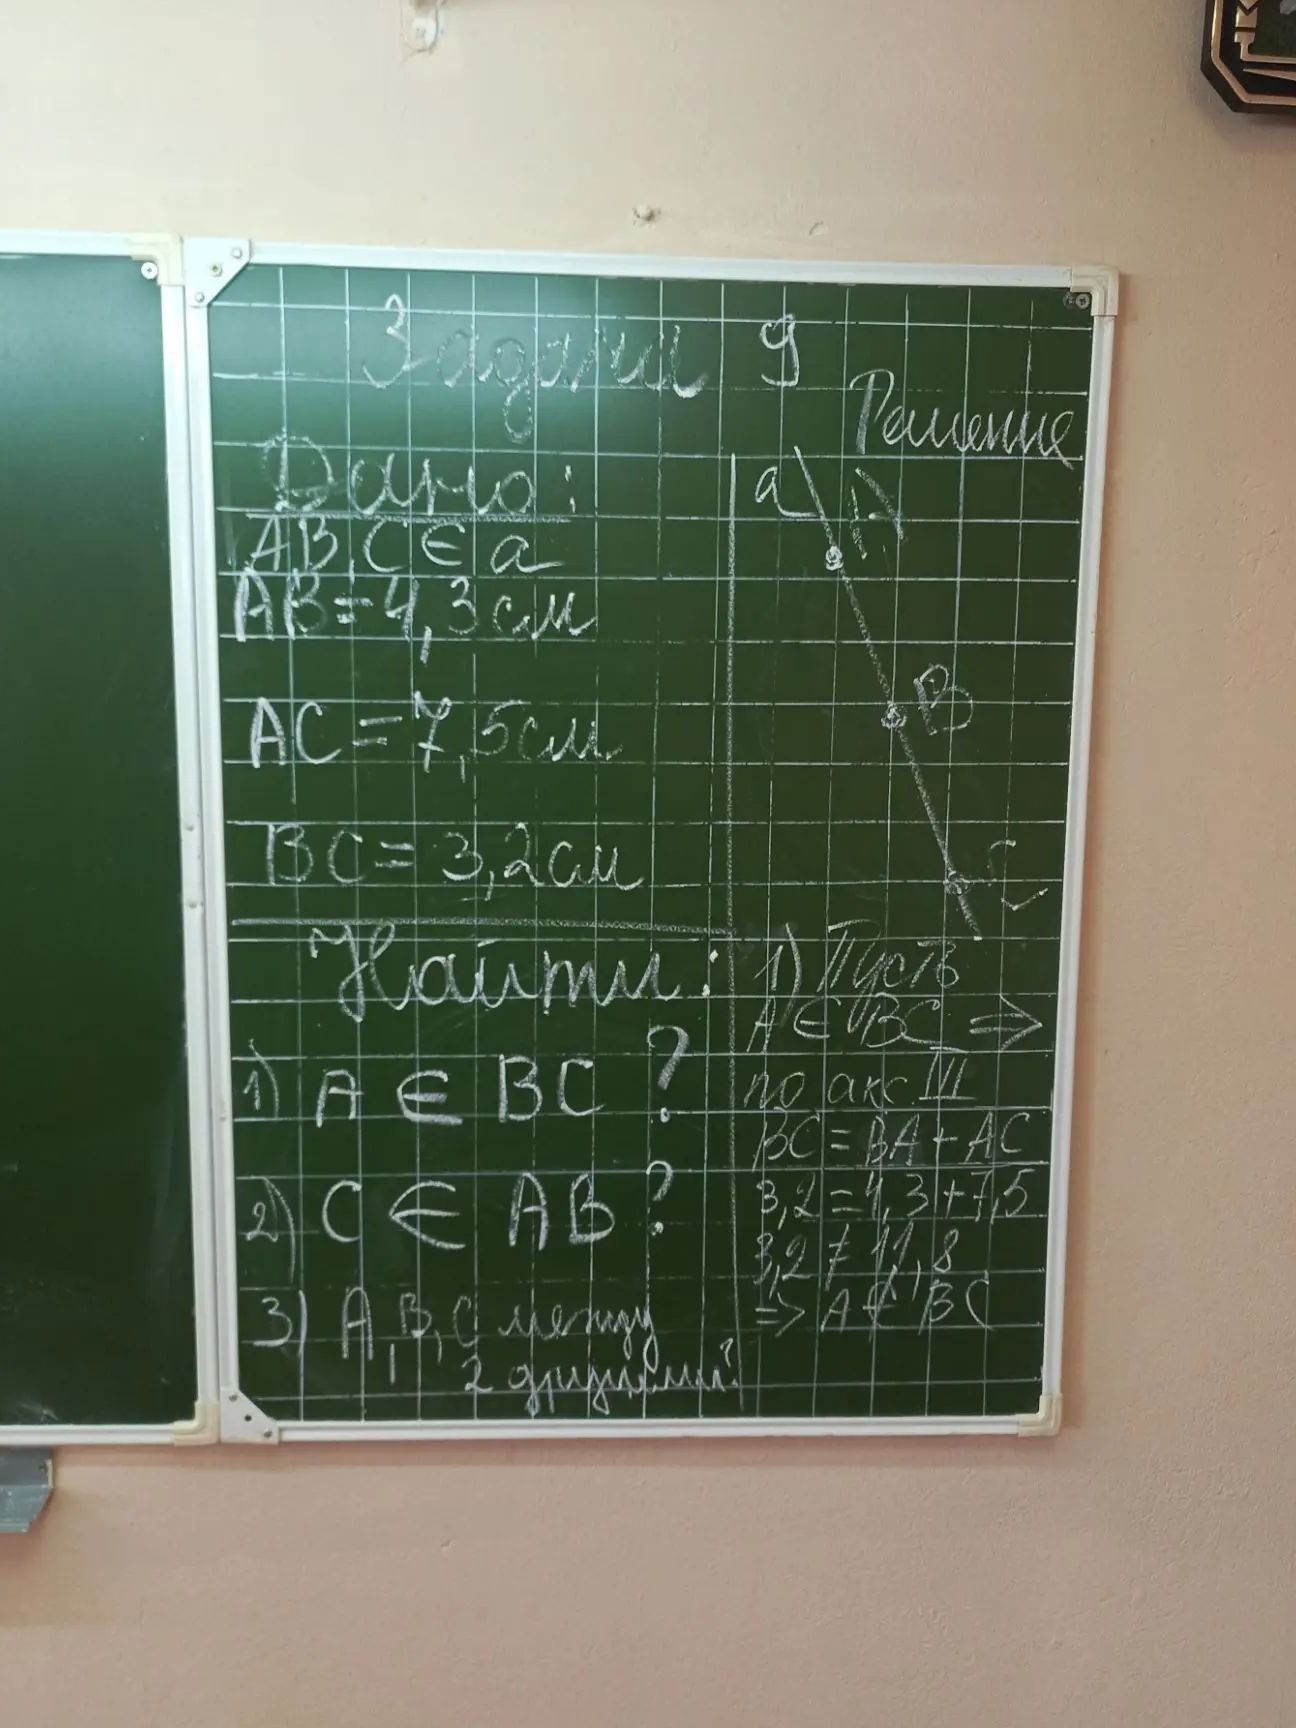 Задача 9
Дано:
A,B,C ∈ a
AB = 4,3 см
AC = 7,5 см
BC = 3,2 см
Найти:
1) A ∈ BC ?
2) C ∈ AB ?
3) A, B, C между
2 другими?
Решение
a
A
B
C
1) Пусть
A ∈ BC ⇒
по акс III
BC = BA + AC
3,2 = 4,3 + 7,5
3,2 ≠ 11,8
=> A ∉ BC